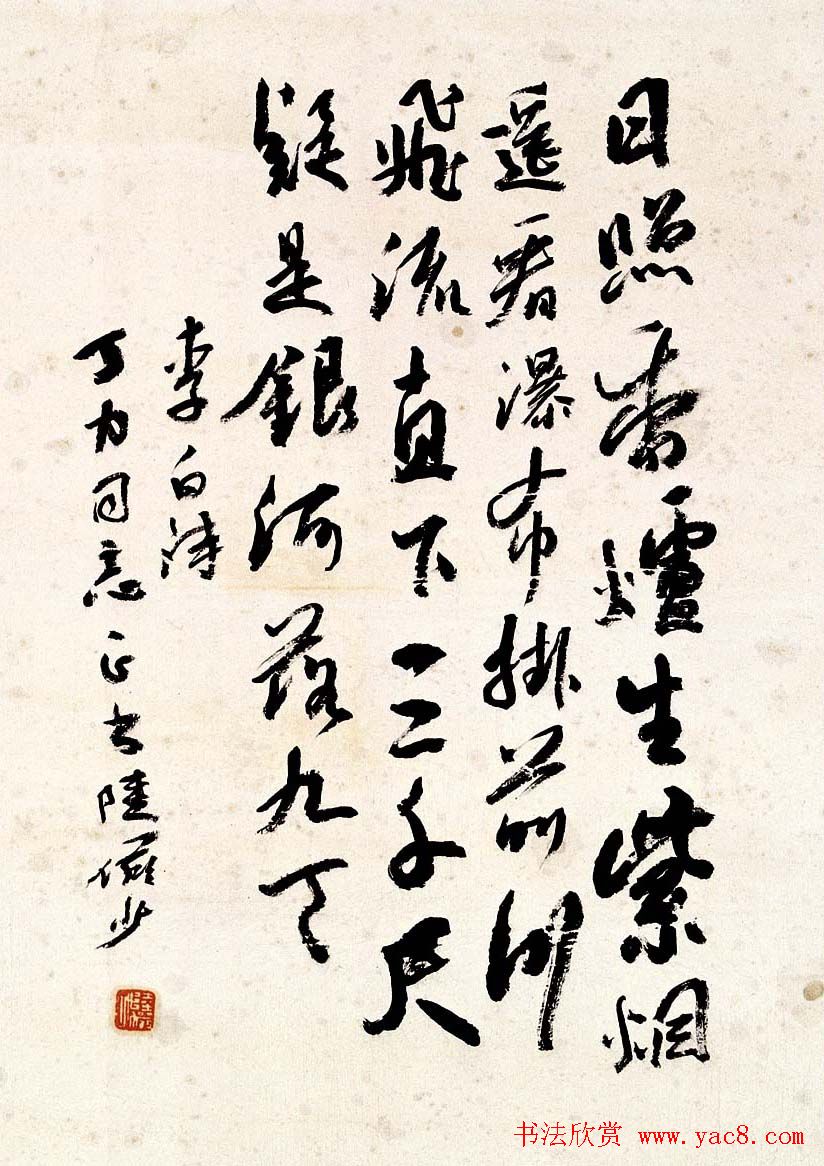 日照香爐生紫烟
遥看瀑布掛前川
飛流直下三千尺
疑是銀河落九天
李白詩
丁力同志正之陸儼少
书法欣赏 www.yac8.com